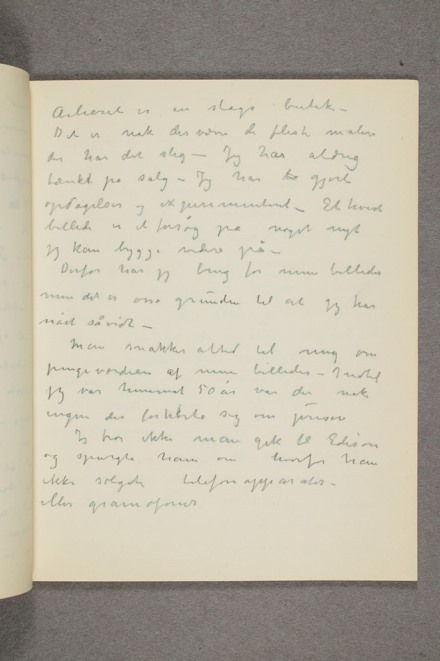 er en slags butik –
Det er nok desværre de fleste malere
der har det slig – Jeg har aldrig
tænkt på salg – Jeg har gjort
opdagelser og experimentert – Et hvert
billede er et forsøg på noget nyt
jeg kan bygge videre på –
Derfor har jeg brug for mine billeder
men det er osse grunden til at jeg har
nåd så vidt –
Man snakker altid til mig om
pengeværdien af mine billeder – Indtil
jeg var henimot 50 år var der nok
ingen der sig om prisen
Jeg tror ikke man gik til Edison
og spurgte ham om hvorfor han
ikke solgte telefonapparater –
eller gramofoner